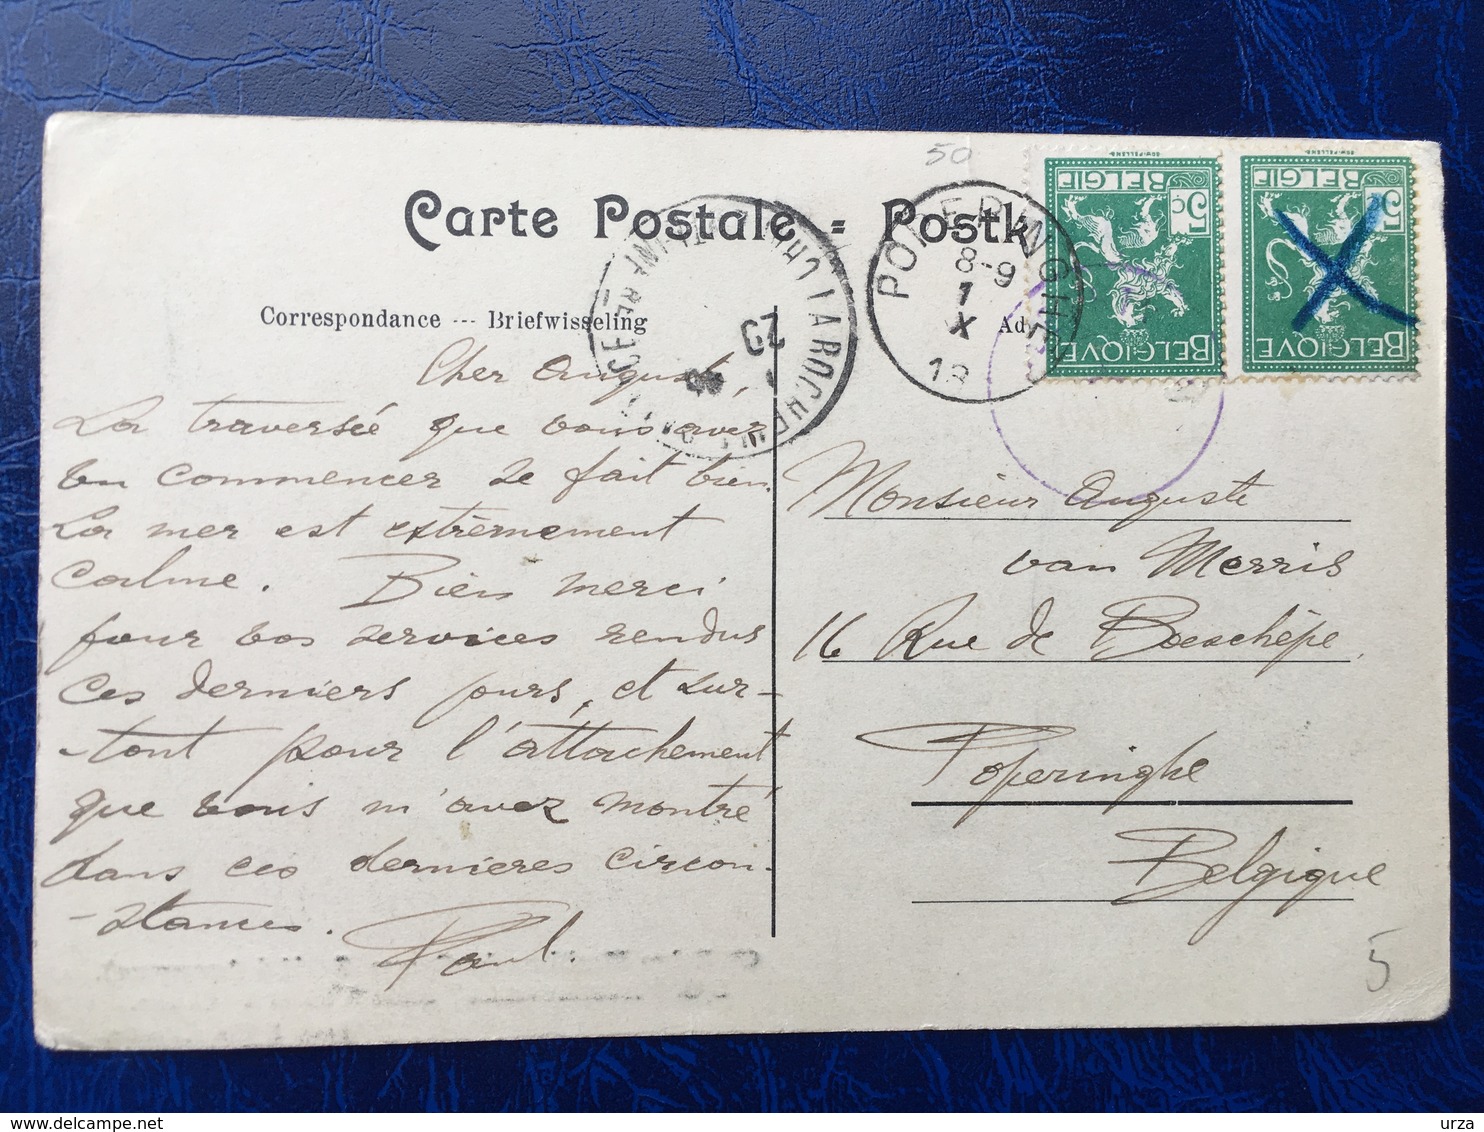 50
Carte Postale = Postk
Correspondance --- Briefwisseling
Ad
POPERINGHE
8-9
1
X
LA ROCHELLE
5c
BELGIE
BELGIQUE
5c
BELGIE
BELGIQUE
Cher Auguste,
La traversée que vous avez
vu commencer se fait bien.
La mer est extrêmement
calme. Bien merci
pour vos services rendus
ces derniers jours, et sur-
-tout pour l'attachement
que vous m'avez montré
dans ces dernieres circon-
-stances.
Paul.
Monsieur Auguste
van Merris
16 Rue de Boeschèpe.
Poperinghe
Belgique
5
urza